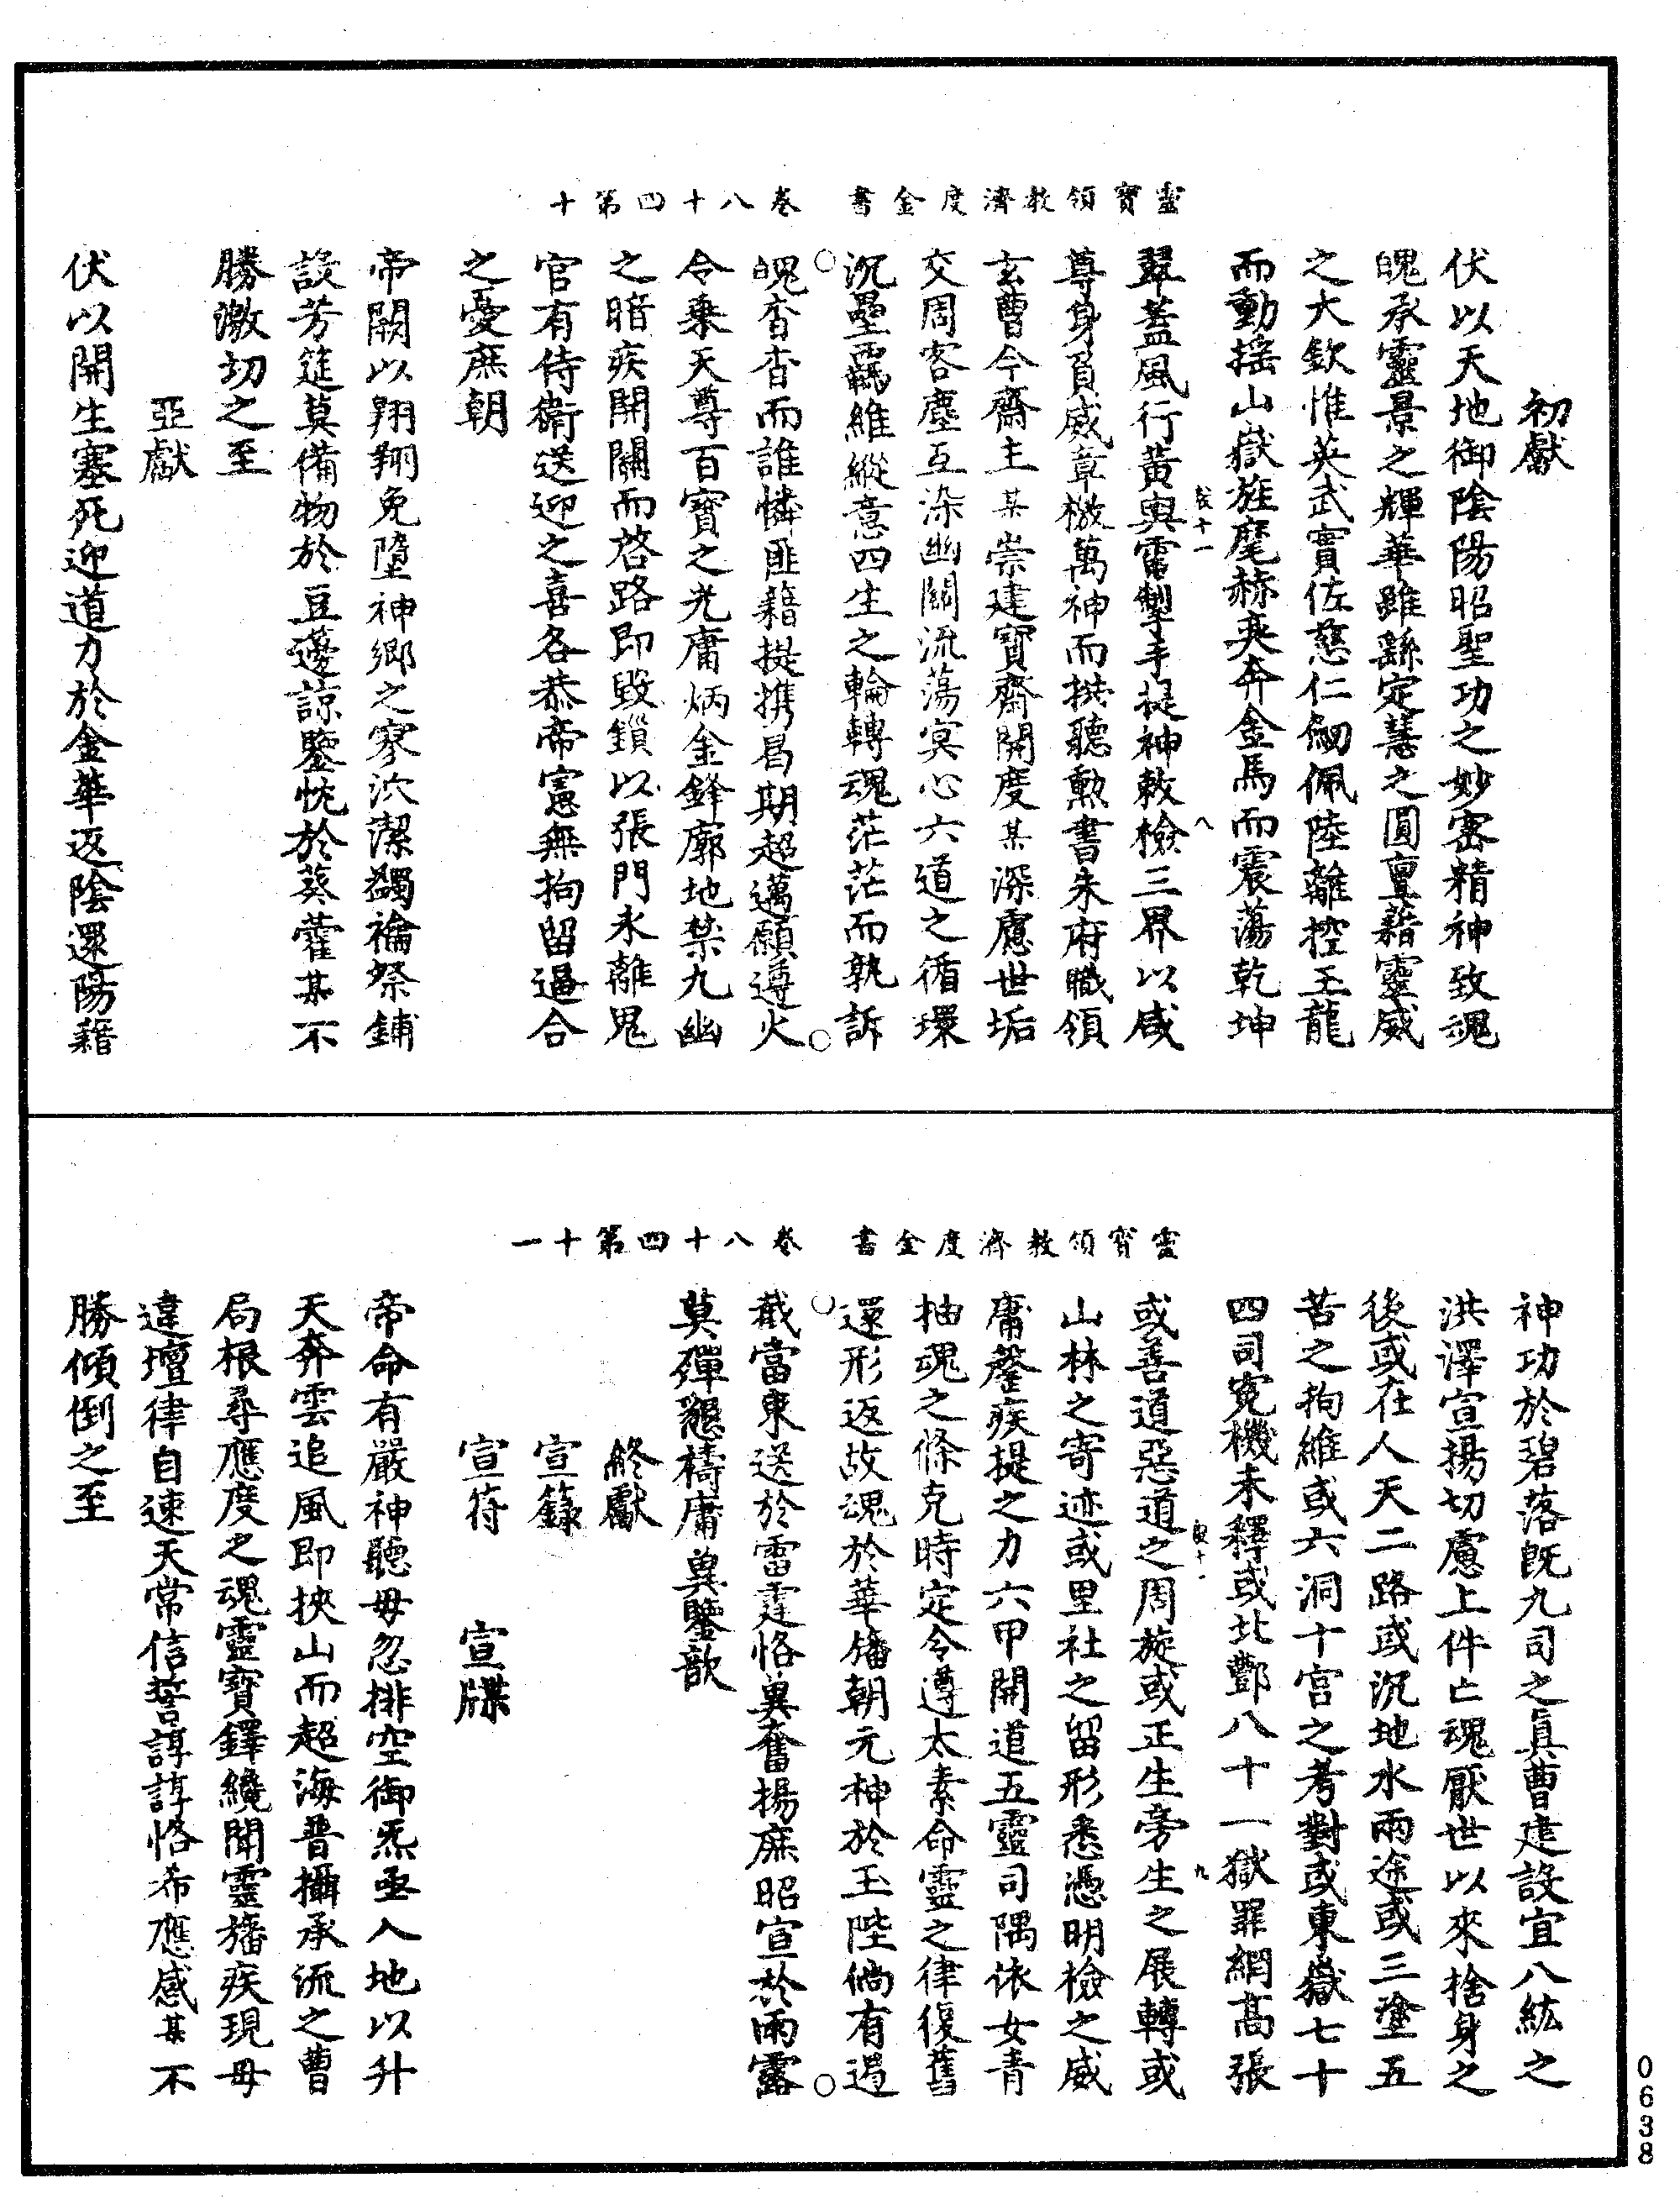 靈寶領教濟度金書 卷八十四第十
初獻
伏以天地御陰陽昭聖功之妙密精神致魂
魄承靈景之輝華雖繇定慧之圓亶藉靈威
之大欽惟英武實佐慈仁劒佩陸離控玉龍
而動搖山嶽旌麾赫奕奔金馬而震蕩乾坤
翠蓋風行黃輿雷掣手提神敕檢三界以咸
尊身負威章檄萬神而拱聽勳書朱府職領
玄曹今齋主某崇建寶齋開度某深慮世垢
交周客塵互染幽關流蕩冥心六道之循環
沉壘羈維縱意四生之輪轉魂茫茫而孰訴
魄杳杳而誰憐匪籍提携曷期超邁願遵火
令乗天尊百寶之光庸炳金鋒廓地禁九幽
之暗疾開關而啓路即毀鎻以張門永離鬼
官有侍衛送迎之喜各恭帝憲無拘留逼合
之憂庶朝
帝闕以翔翔免墮神鄉之寥泬潔蠲禴祭鋪
設芳筵莫備物於豆籩諒鑒忱於葵藿某不
勝激切之至
亞獻
伏以開生塞死迎道力於金華返陰還陽藉
靈寶領教濟度金書 卷八十四第十一
神功於碧落旣九司之眞曹建設宜八紘之
洪澤宣揚切慮上件亡魂厭世以來捨身之
後或在人天二路或沉地水兩途或三塗五
苦之拘維或六洞十宮之考對或東嶽七十
四司寃機未釋或北酆八十一獄罪網高張
或善道惡道之周旋或正生旁生之展轉或
山林之寄迹或里社之留形悉憑明檢之威
庸罄疾提之力六甲開道五靈司隅依女青
抽魂之條克時定令遵太素命靈之律復舊
還形返故魂於華旛朝元神於玉陛倘有遏
截當東送於雷霆恪兾奮揚庶昭宣於雨露
莫殫懇禱庸兾鑒歆
終獻
宣籙
宣符 宣牒
帝命有嚴神聽毋忽排空御炁亟入地以升
天奔雲追風即挾山而超海普攝承流之曹
局根尋應度之魂靈寶鐸纔聞靈旛疾現毋
違壇律自速天常信誓諄諄恪希應感某不
勝傾倒之至
0638